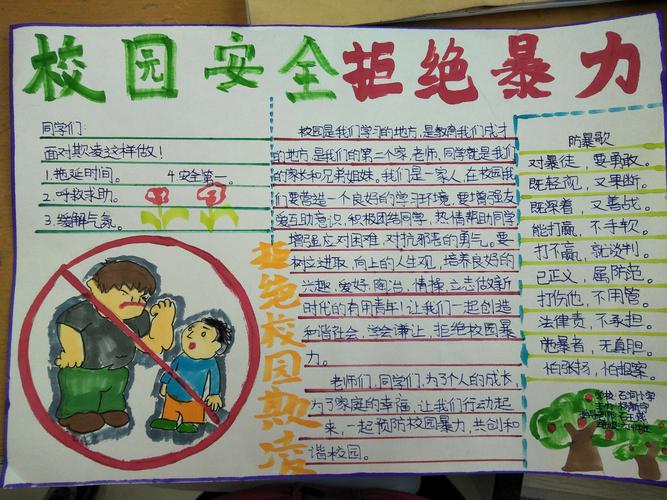 校园安全拒绝暴力
同学们:
面对欺凌这样做!
1.拖延时间。 4.安全第一。
2.呼救求助。
3.缓解气氛。
拒绝校园欺凌
校园是我们学习的地方,是教育我们成才
的地方,是我们的第二个家,老师,同学就是我们
的家长和兄弟姐妹,我们是一家人,在校园我
们要营造一个良好的学习环境,要增强友
爱互助意识,积极团结同学,热情帮助同学
增强应对困难,对抗邪恶的勇气。要
树立进取,向上的人生观,培养良好的
兴趣,爱好,陶冶,情操,立志做新
时代的有用青年!让我们一起创造
和谐社会,学会谦让,拒绝校园暴
力。
老师们,同学们,为了个人的成长,
为了家庭的幸福,让我们行动起
来,一起预防校园暴力,共创和
谐校园。
防暴歌
对暴徒,要勇敢。
既轻视,又果断。
既深着,又善战。
能打赢,不手软。
打不赢,就谈判。
己正义,属防范。
打伤他,不用管。
法律责,不承担。
施暴者,无真胆。
怕张扬,怕报案。
学校:石河小学